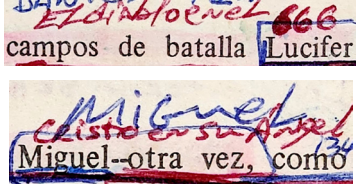 El diablo en el 666
campos de batalla Lucifer
Miguel
Cristo en su Angel
Miguel--otra vez, como
134